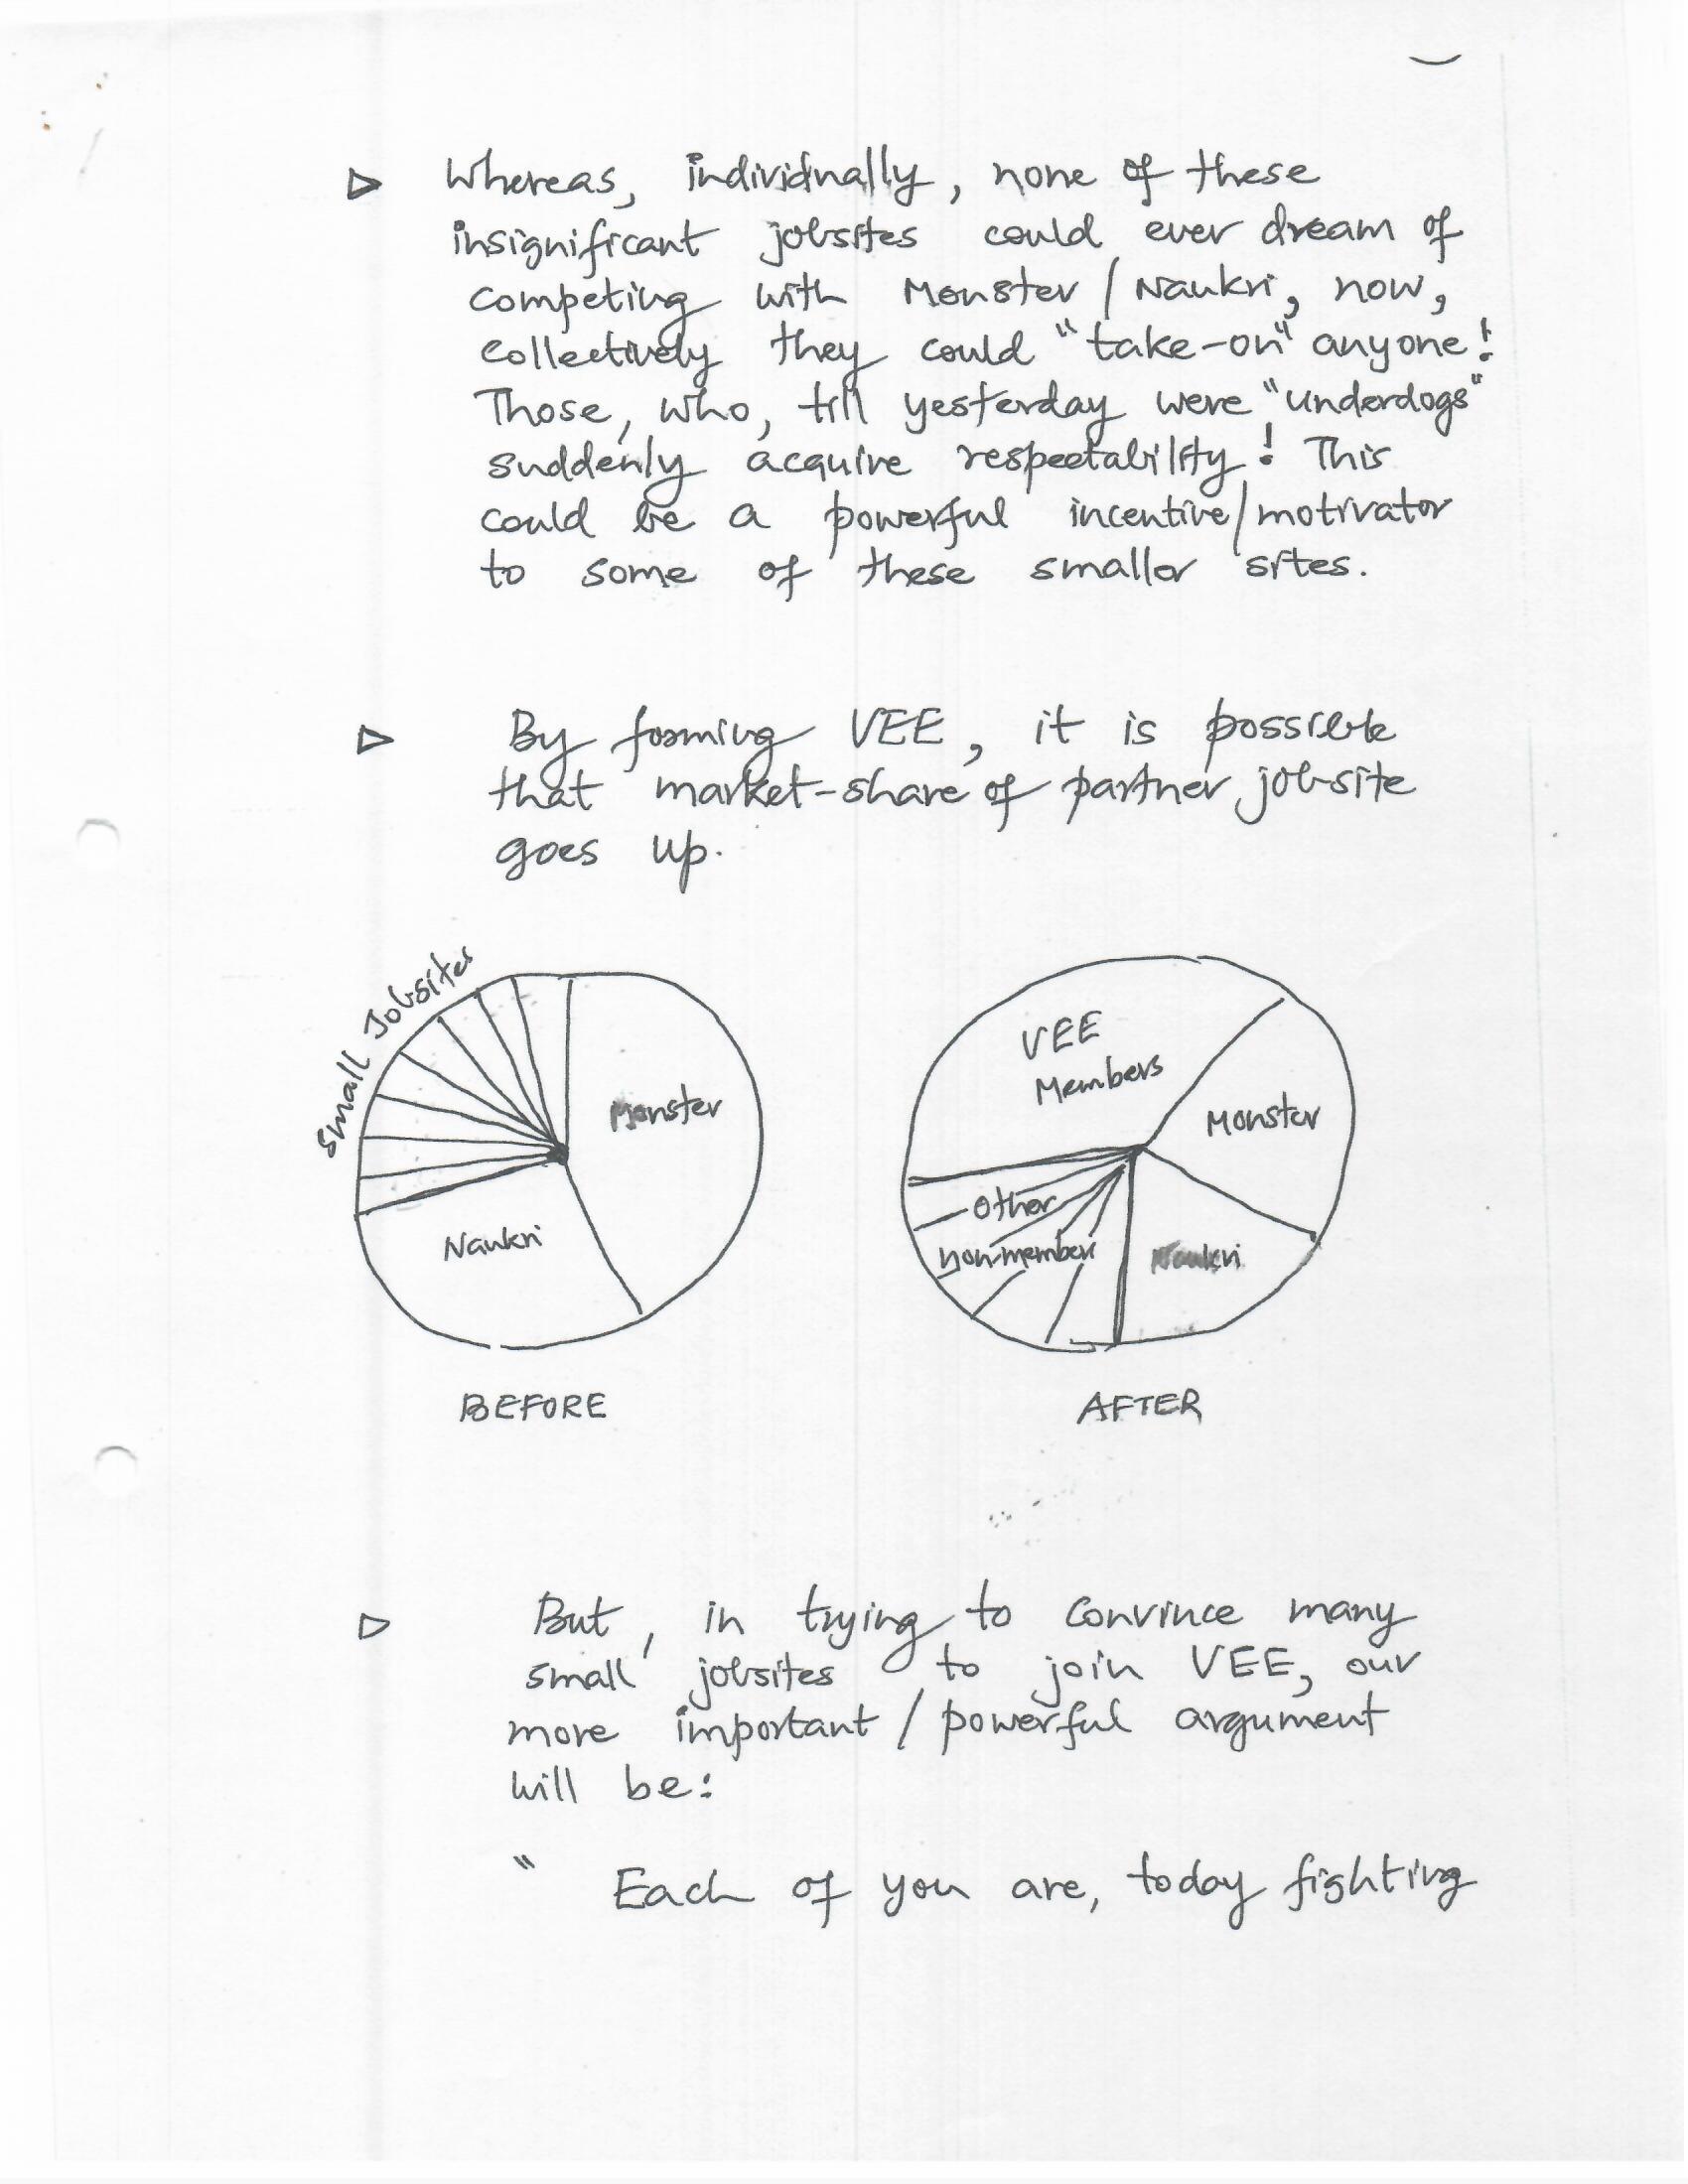 ▷ Whereas, individually, none of these
insignificant jobsites could ever dream of
competing with Monster / Naukri, now,
collectively they could "take-on" anyone!
Those, who, till yesterday were "underdogs"
suddenly acquire respectability! This
could be a powerful incentive/motivator
to some of these smaller sites.
▷ By forming VEE, it is possible
that market-share of partner jobsite
goes up.
Small Jobsites
Monster
Naukri
BEFORE
VEE
Members
Monster
Other
non-members
Naukri
AFTER
▷ But, in trying to convince many
small jobsites to join VEE, our
more important / powerful argument
will be:
" Each of you are, today fighting